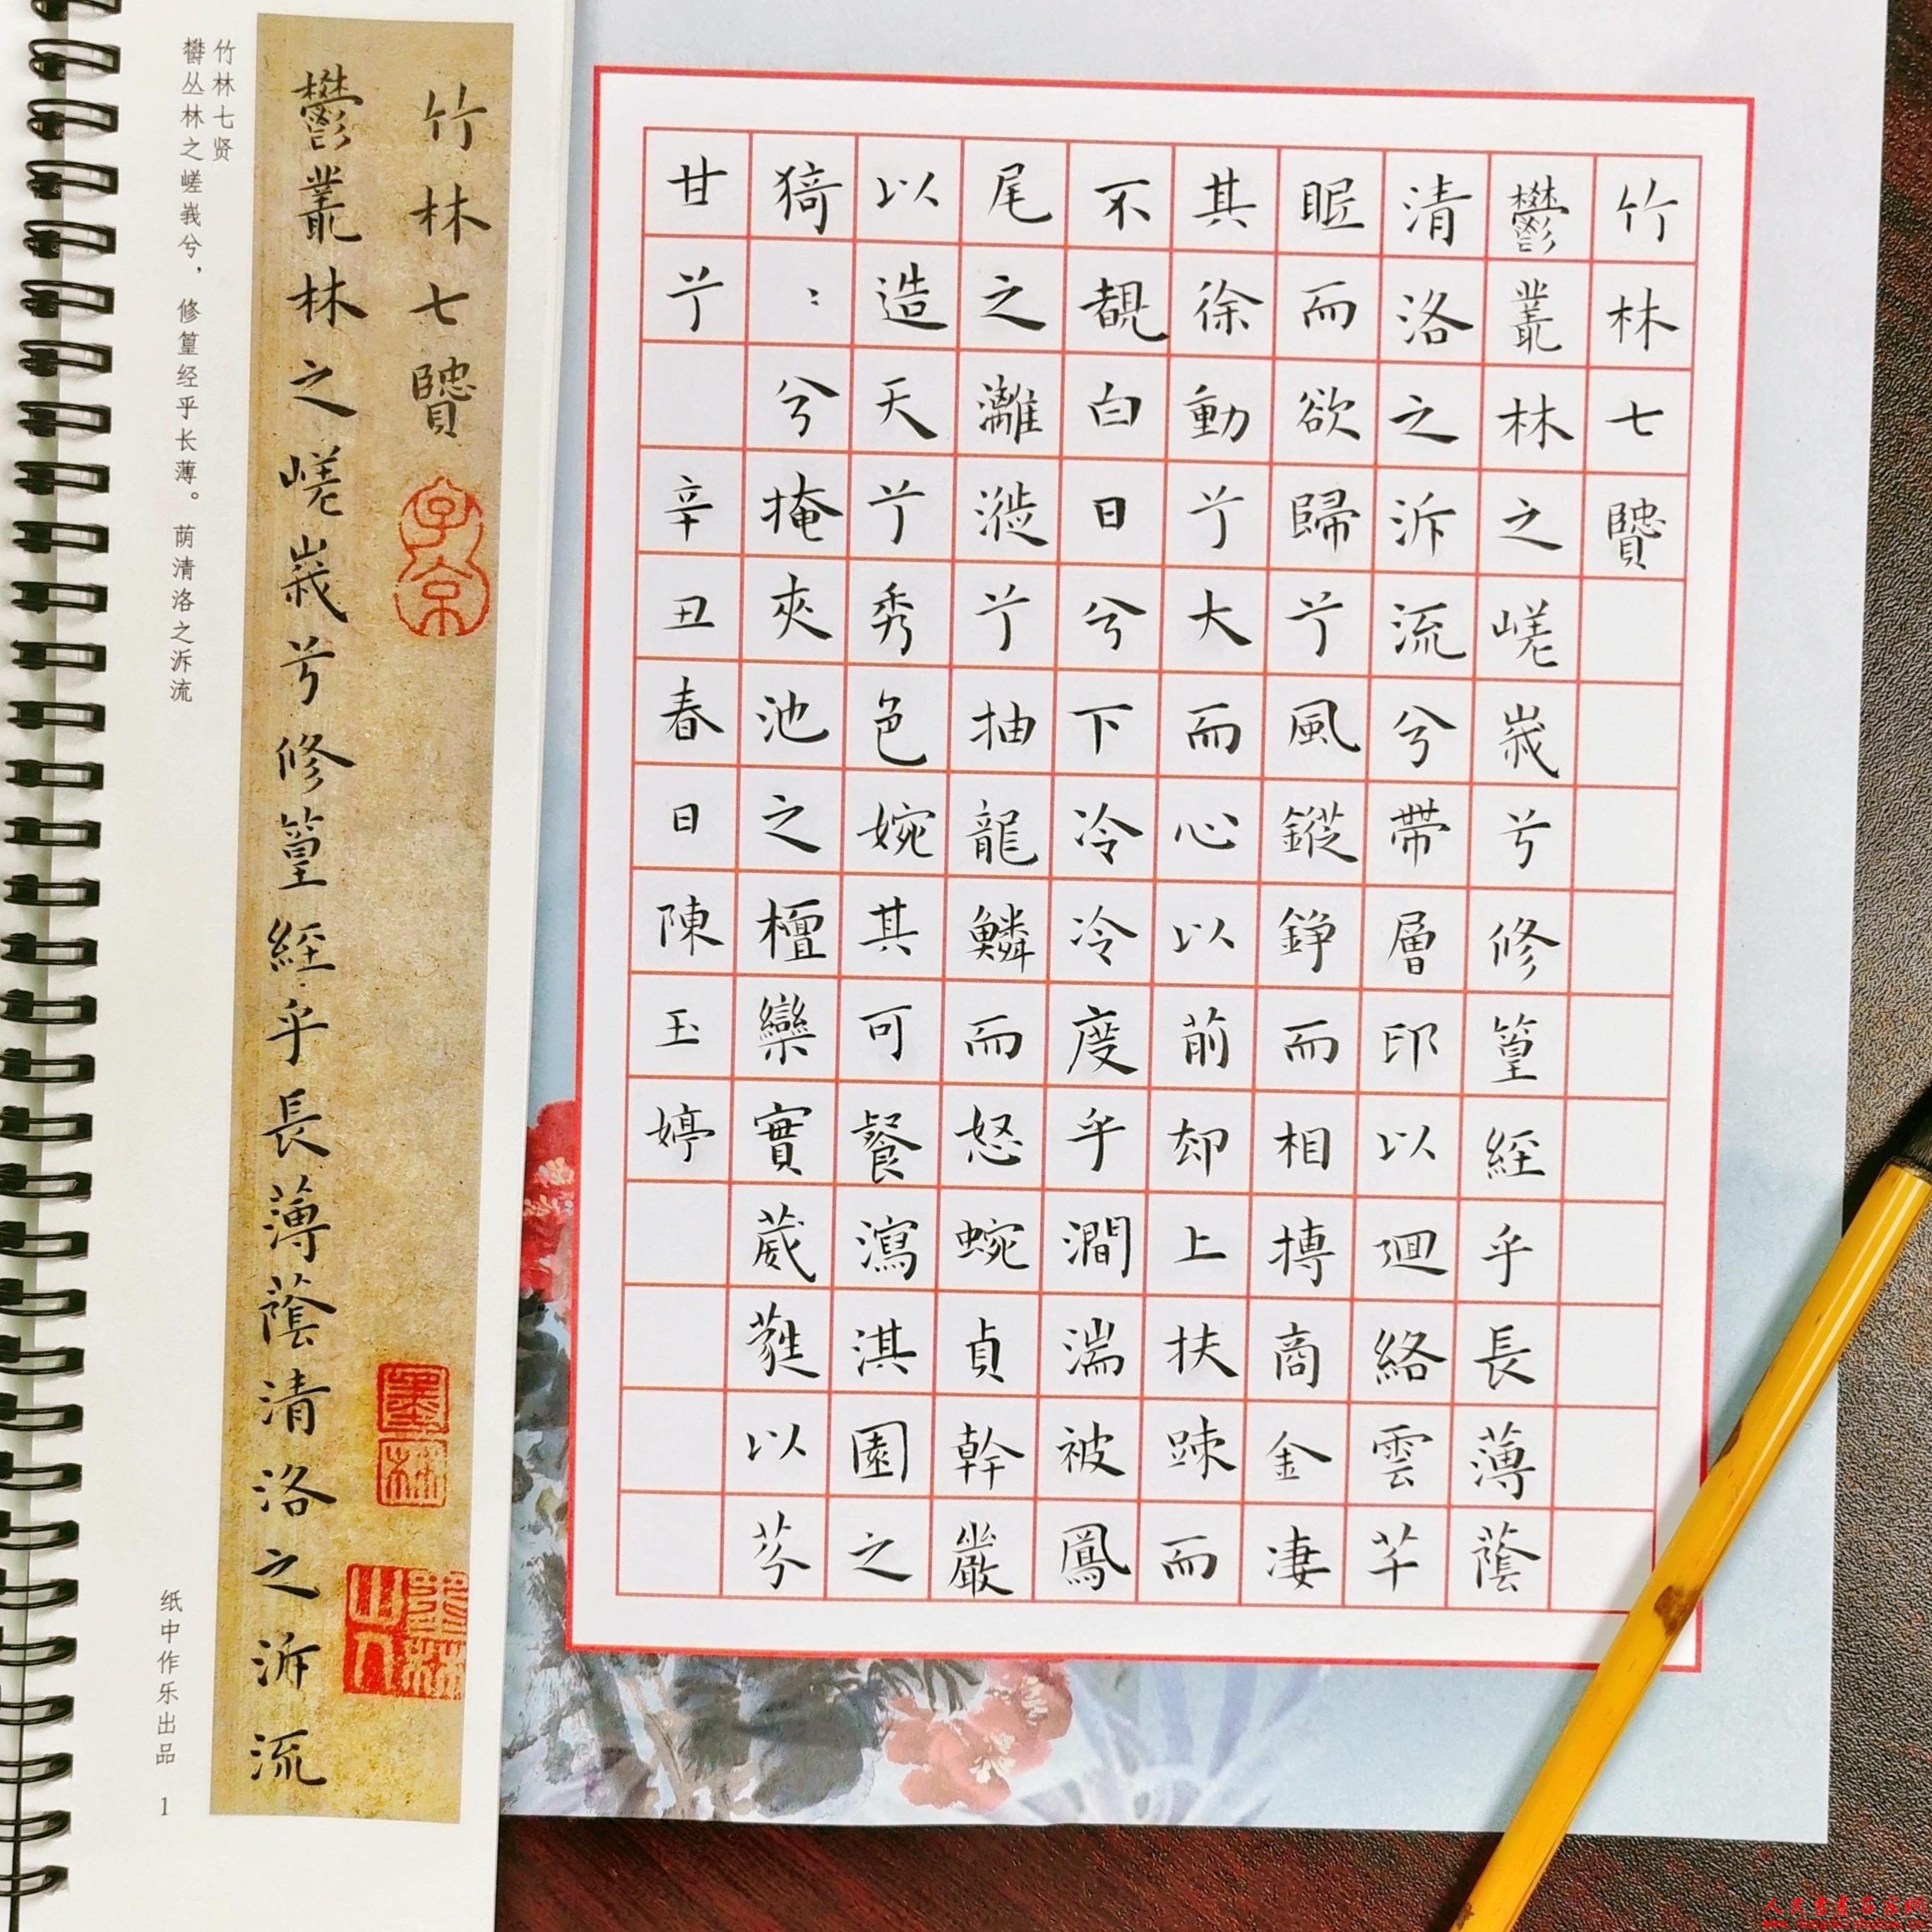 竹林七賢
鬱叢林之嵯峩兮修篁經乎長薄蔭清洛之泝流
竹林七贤
欝丛林之嵯峩兮，修篁经乎长薄。荫清洛之泝流
纸中作乐出品 1
竹林七賢
鬱叢林之嵯峩兮修篁經乎長薄蔭
清洛之泝流兮帶層印以迴絡雲芊
眠而欲歸兮風鏦錚而相摶商金凄
其徐動兮大而心以前却上扶踈而
不覩白日兮下冷冷度乎澗湍被鳳
尾之灕漇兮抽龍鱗而怒蜿貞幹巖
以造天兮秀色婉其可餐瀉淇園之
猗：兮掩夾池之檀欒實葳蕤以芬
甘兮 辛丑春日陳玉婷